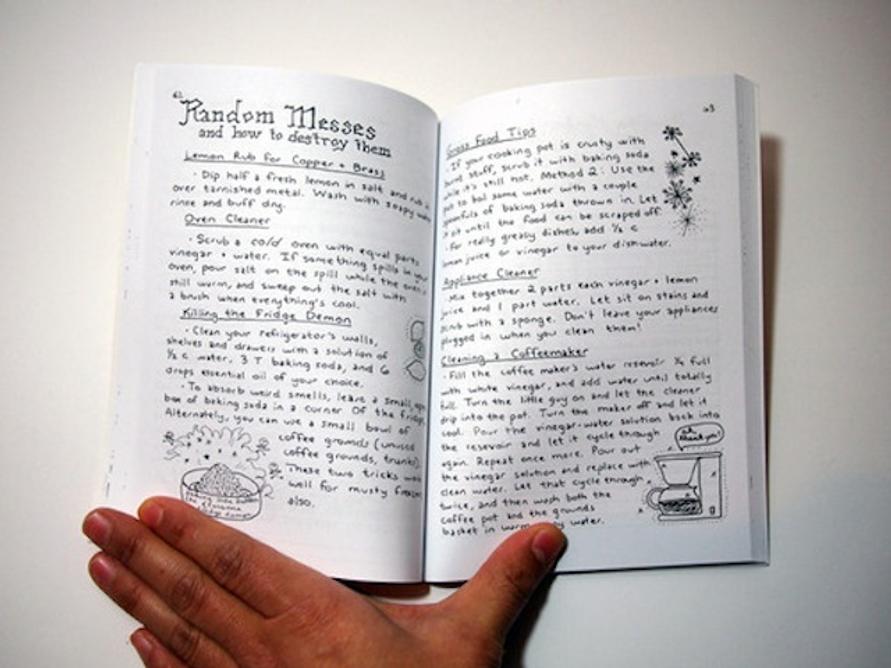 62
Random Messes
and how to destroy them
Lemon Rub for Copper + Brass
· Dip half a fresh lemon in salt and rub it
over tarnished metal. Wash with soapy water
rinse and buff dry.
Oven Cleaner
· Scrub a cold oven with equal parts
vinegar + water. If something spills in your
oven, pour salt on the spill while the oven is
still warm, and sweep out the salt with
a brush when everything's cool.
Killing the Fridge Demon
· Clean your refrigerator's walls,
shelves and drawers with a solution of
½ c water, 3 T baking soda, and 6
drops essential oil of your choice.
· To absorb weird smells, leave a small, open
box of baking soda in a corner of the fridge.
Alternately, you can use a small bowl of
coffee grounds (unused
coffee grounds,
These two tricks work
well for musty
also.
baking soda
63
Gross Food Tips
· If your cooking pot is crusty with
burnt stuff, scrub it with baking soda
while it's still hot. Method 2: Use the
pot to boil some water with a couple
spoonfuls of baking soda thrown in. Let
it sit until the food can be scraped off.
· For really greasy dishes, add ½ c
lemon juice or vinegar to your dishwater.
Appliance Cleaner
· Mix together 2 parts each vinegar + lemon
juice and 1 part water. Let sit on stains and
scrub with a sponge. Don't leave your appliances
plugged in when you clean them!
Cleaning a Coffeemaker
· Fill the coffee maker's water resevoir ¾ full
with white vinegar, and add water until totally
full. Turn the little guy on and let the cleaner
drip into the pot. Turn the maker off and let it
cool. Pour the vinegar-water solution back into
the resevoir and let it cycle through
again. Repeat once more. Pour out
the vinegar solution and replace with
clean water. Let that cycle through
twice, and then wash both the
coffee pot and the grounds
basket in warm water.
thank you!